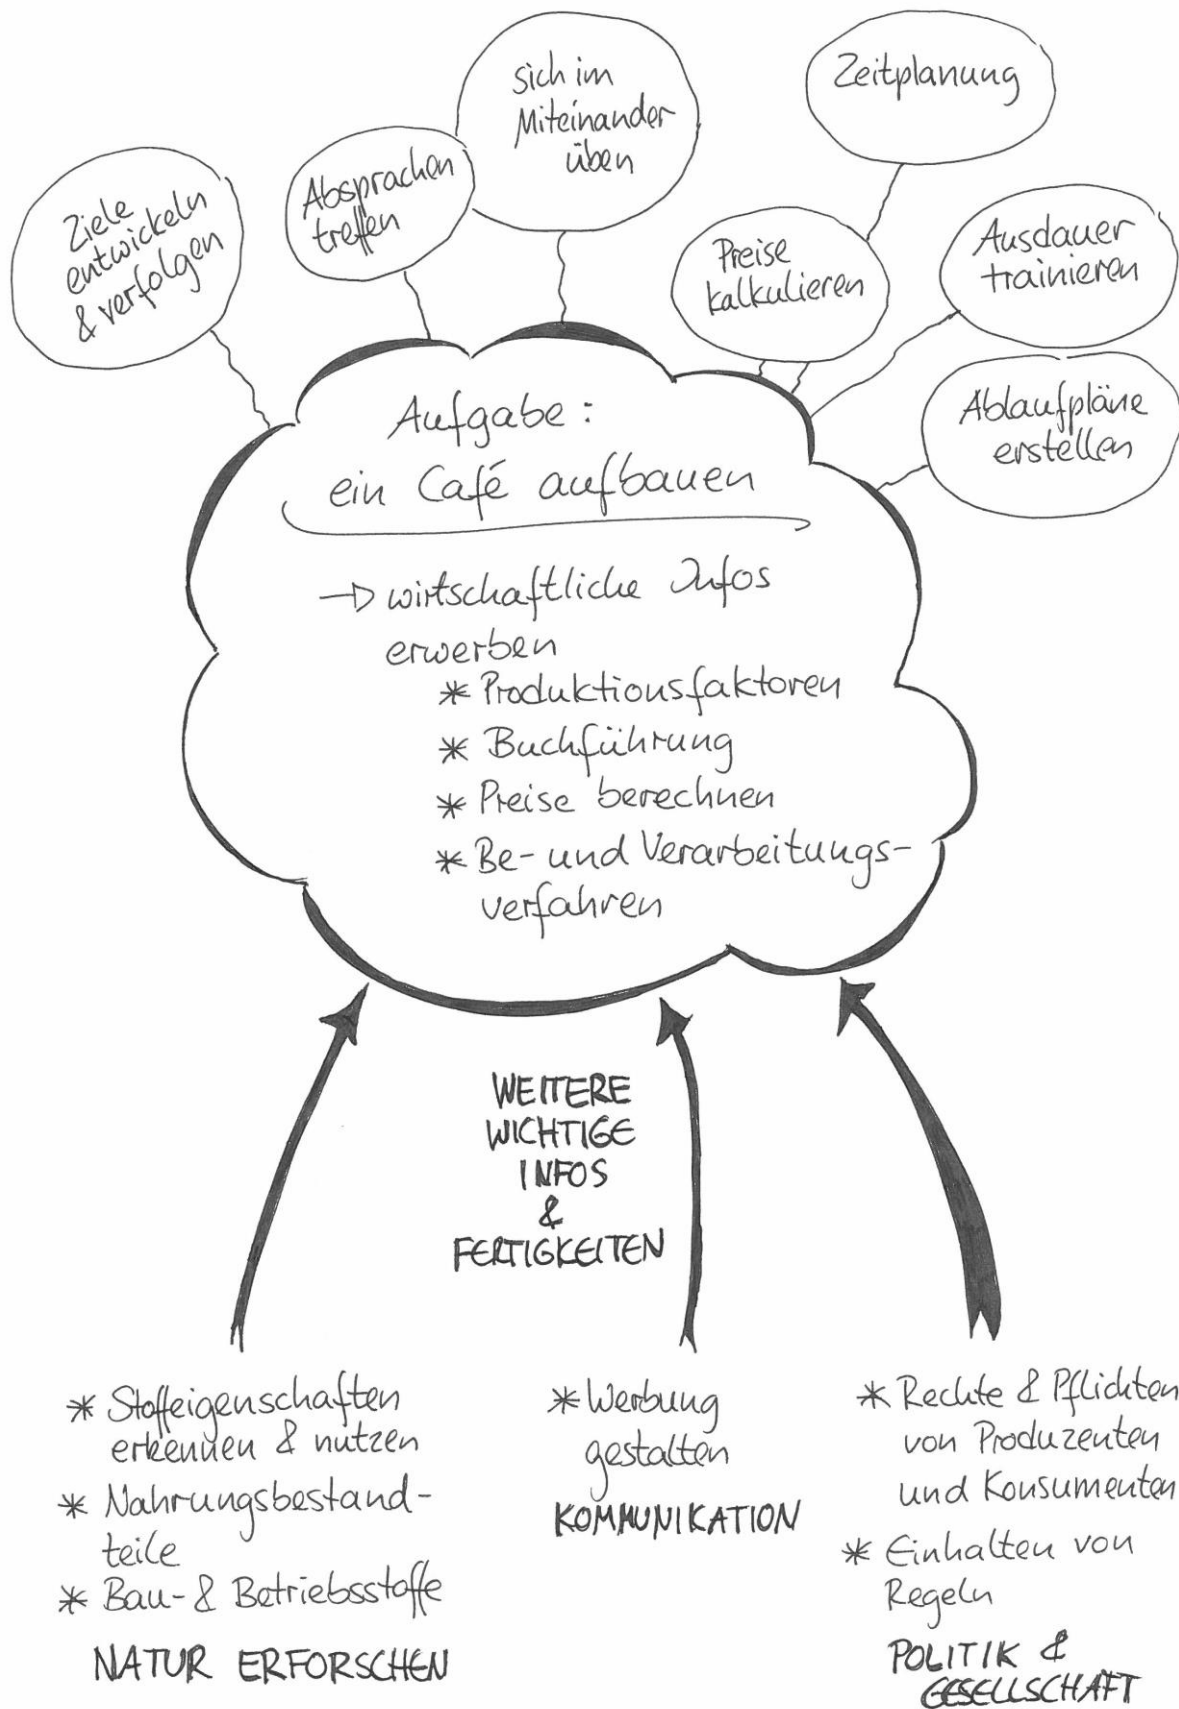 sich im
Miteinander
üben
Zeitplanung
Ziele
entwickeln
& verfolgen
Absprachen
treffen
Preise
kalkulieren
Ausdauer
trainieren
Ablaufpläne
erstellen
Aufgabe:
ein Café aufbauen
→ wirtschaftliche Infos
erwerben
* Produktionsfaktoren
* Buchführung
* Preise berechnen
* Be- und Verarbeitungs-
verfahren
WEITERE
WICHTIGE
INFOS
&
FERTIGKEITEN
* Stoffeigenschaften
erkennen & nutzen
* Nahrungsbestand-
teile
* Bau- & Betriebsstoffe
NATUR ERFORSCHEN
* Werbung
gestalten
KOMMUNIKATION
* Rechte & Pflichten
von Produzenten
und Konsumenten
* Einhalten von
Regeln
POLITIK &
GESELLSCHAFT